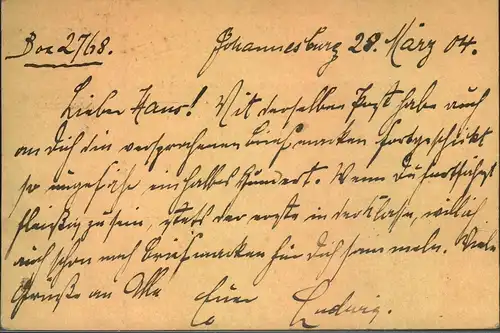 Box 2768. Johannesburg 28. März 04.
Lieber Hans! Mit derselben Post habe auch
an Dich die versprochenen Briefmarken fortgeschickt
so ungefähr ein halbes Hundert. Wenn Du fortfährst
fleißig zu sein, stets der erste in der Klasse, will ich
auch schon noch Briefmarken für Dich sammeln. Viele
Grüße an Alle Euer Ludwig.